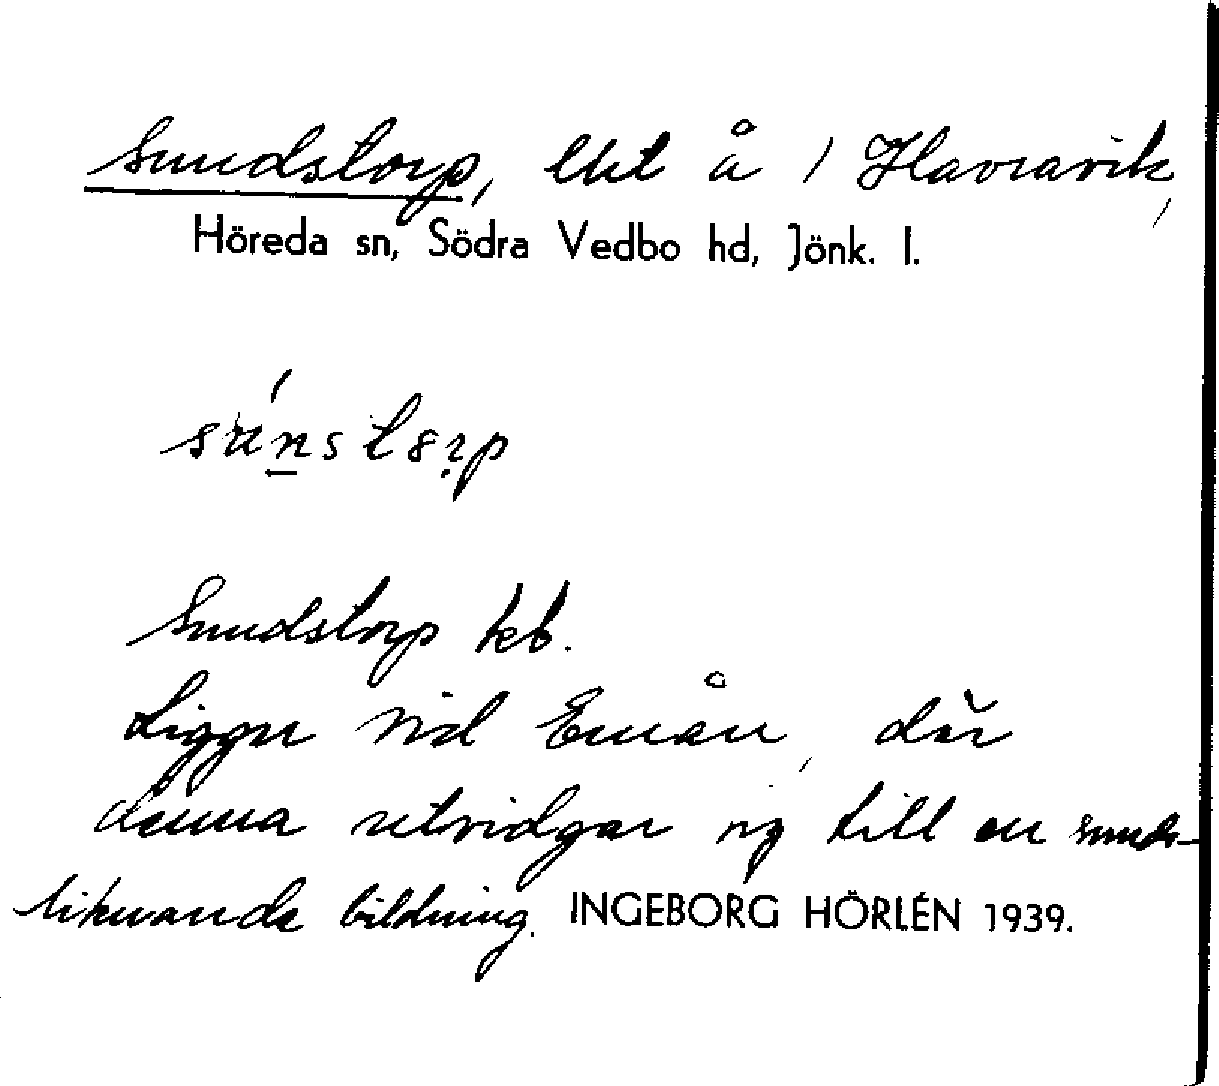 Sundstorp, lht å 1 Havravik,
Höreda sn, Södra Vedbo hd, Jönk. l.
Sundstorp kb.
Ligger vid Emån, där
denna utvidgar sig till en sunds-
liknande bildning. INGEBORG HÖRLÉN 1939.